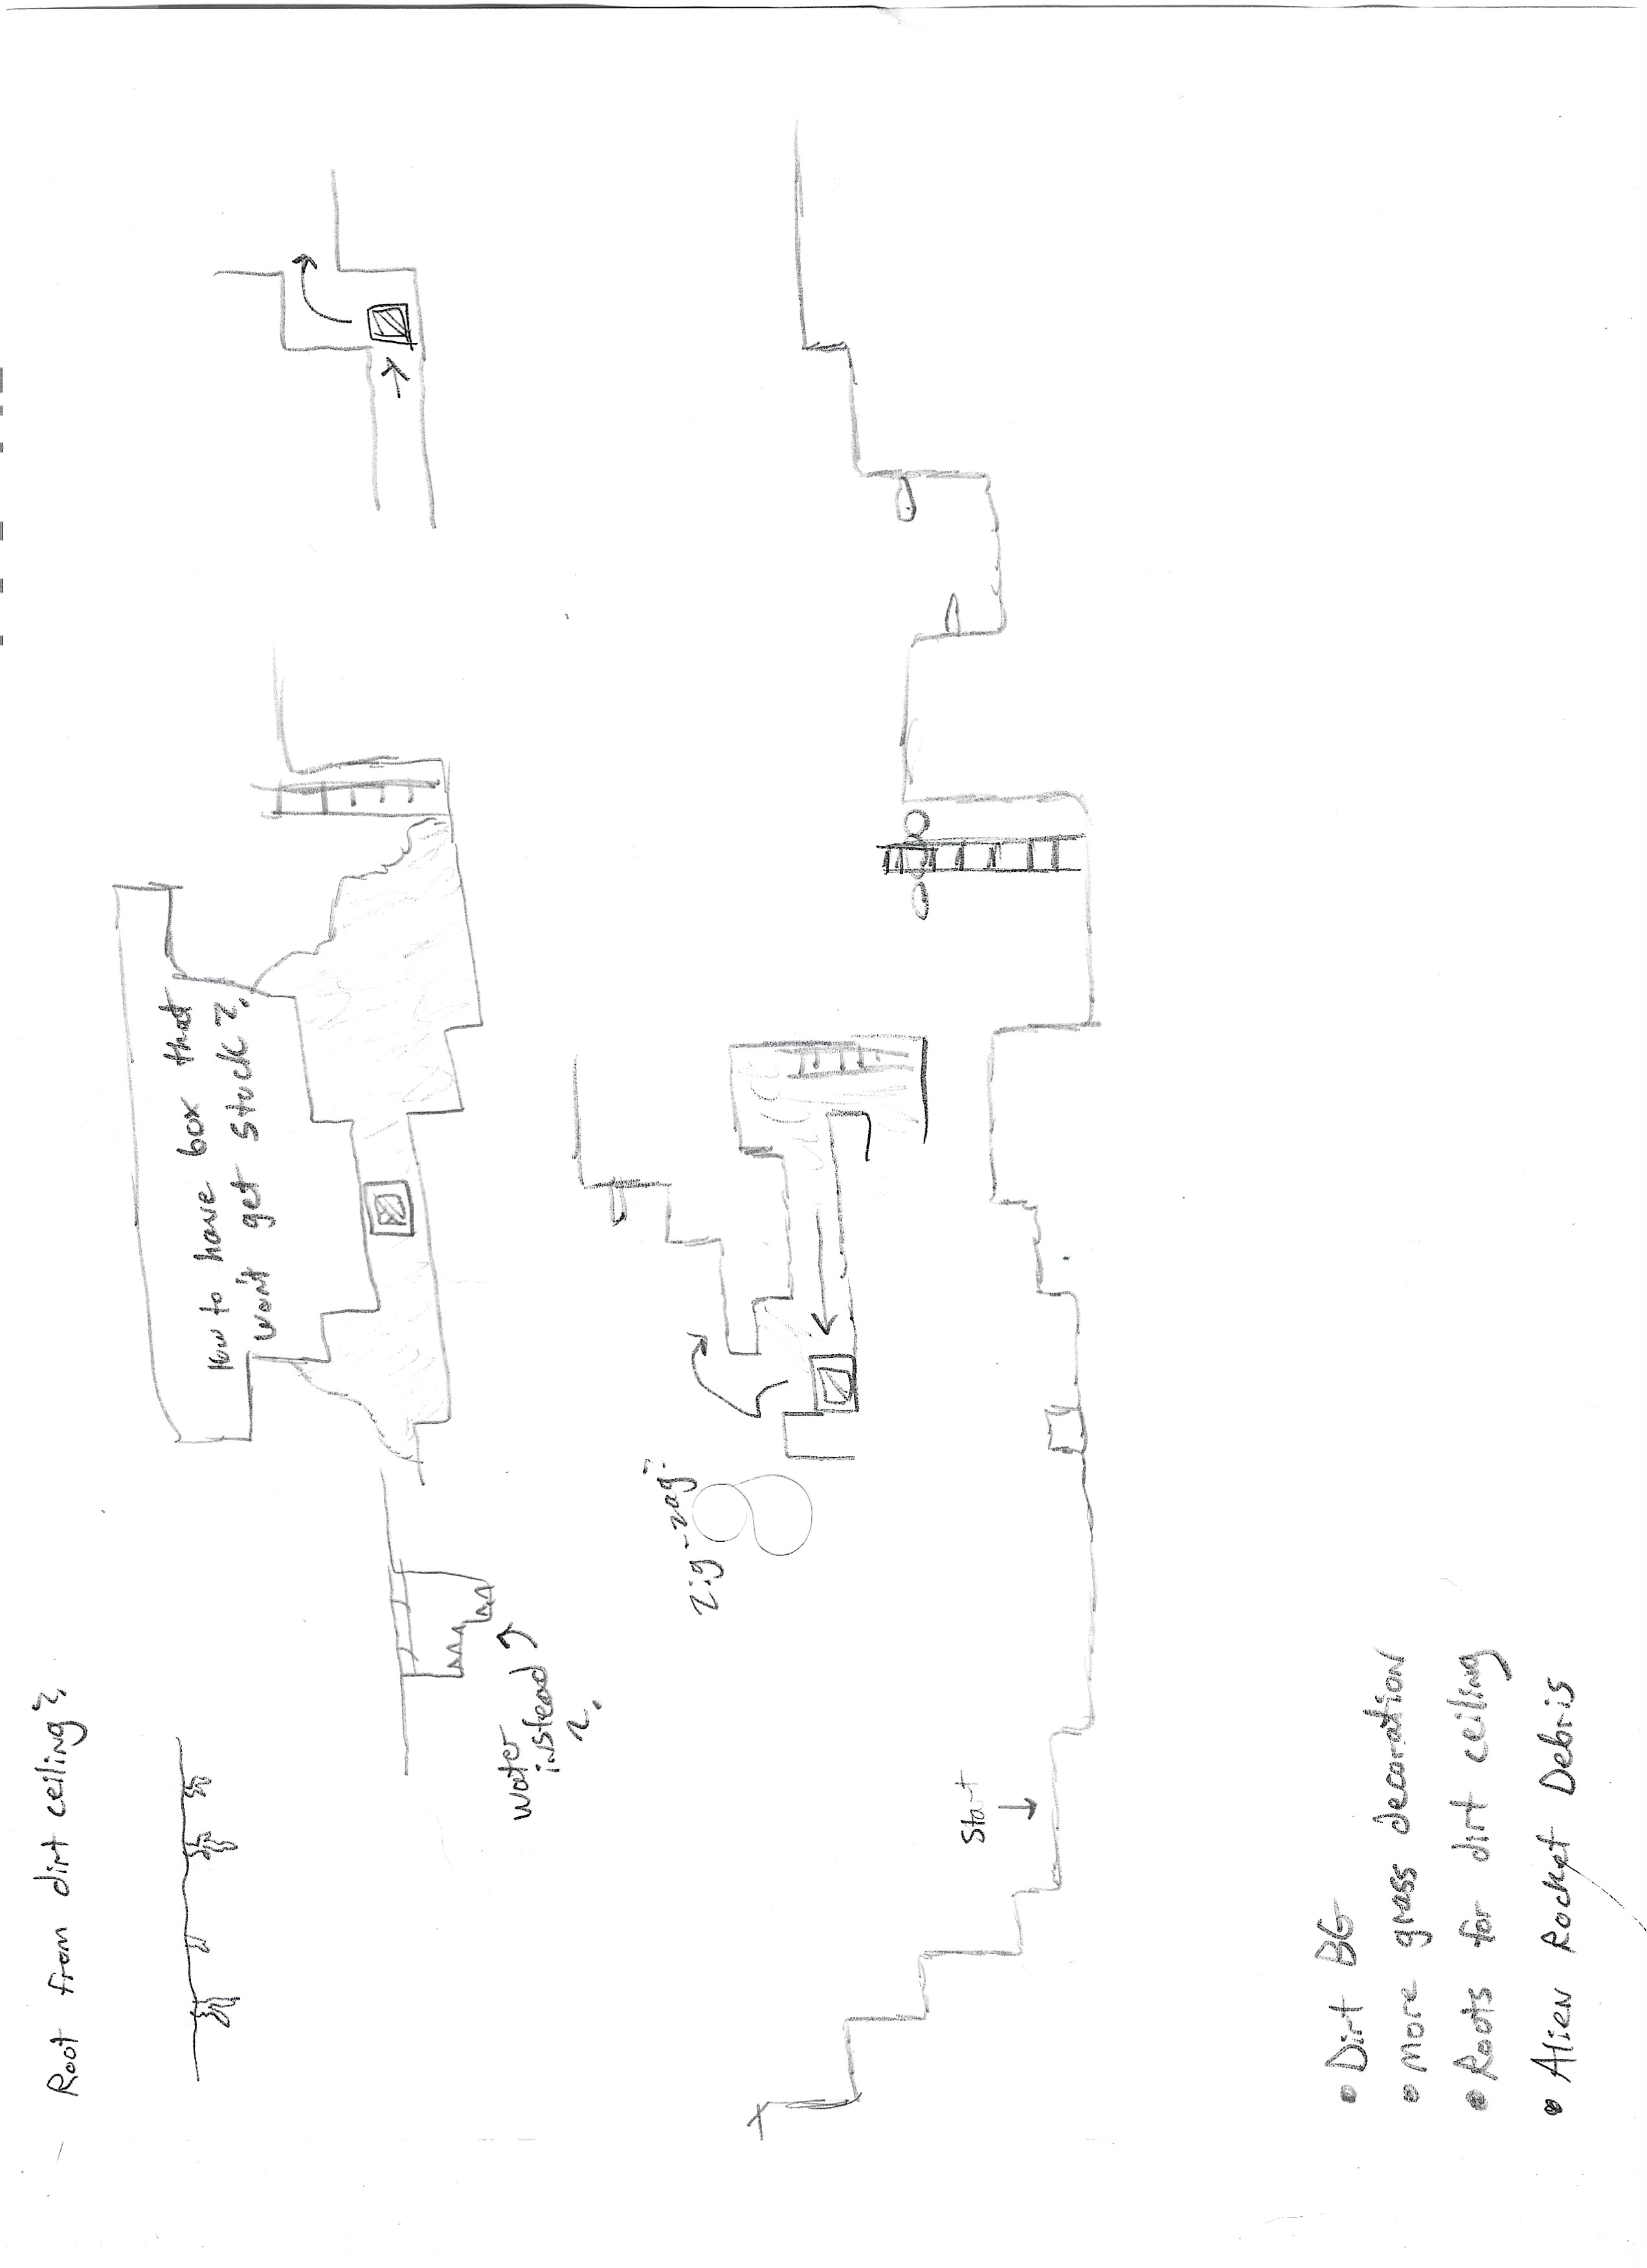 Root from dirt ceiling?
How to have box that
won't get stuck?
water
instead
?
zig-zag?
Start
• Dirt BG
• more grass decoration
• Roots for dirt ceiling
• Alien Rocket Debris